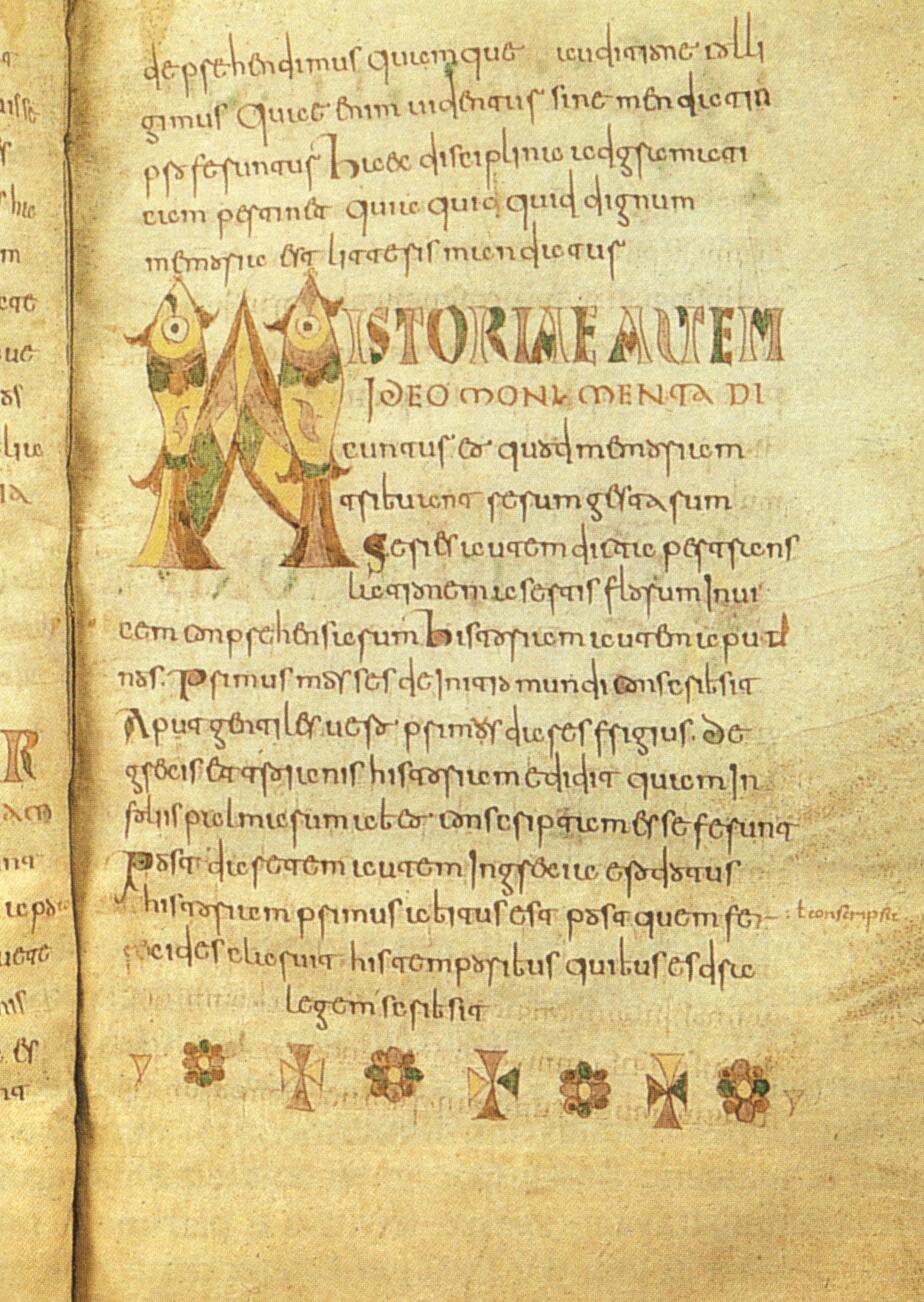 deprehendimus quamque auditione colli
gimus Quae enim uidentur sine mendatio
proferuntur Haec disciplina ad gramati
cam pertinet quia quid quid dignum
memoria est litteris mandatur
HISTORIAE AUTEM
IDEO MONUMENTA DI
cuntur eo quod memoriam
tribuant rerum gestarum
Series autem dicta per trans
lationem a sertis florum inui
cem conprehensarum Historiam autem aput
nos. Primus moyses de initio mundi conscribsit
Aput gentiles uero primus dares frigius. de
grecis et troianis historiam edidit quam in
foliis palmarum ab eo conscriptam esse ferunt
Post daretem autem in grecia erodotus
historiam primus abitus est post quem fe
recides claruit his temporibus quibus esdra
legem scribsit